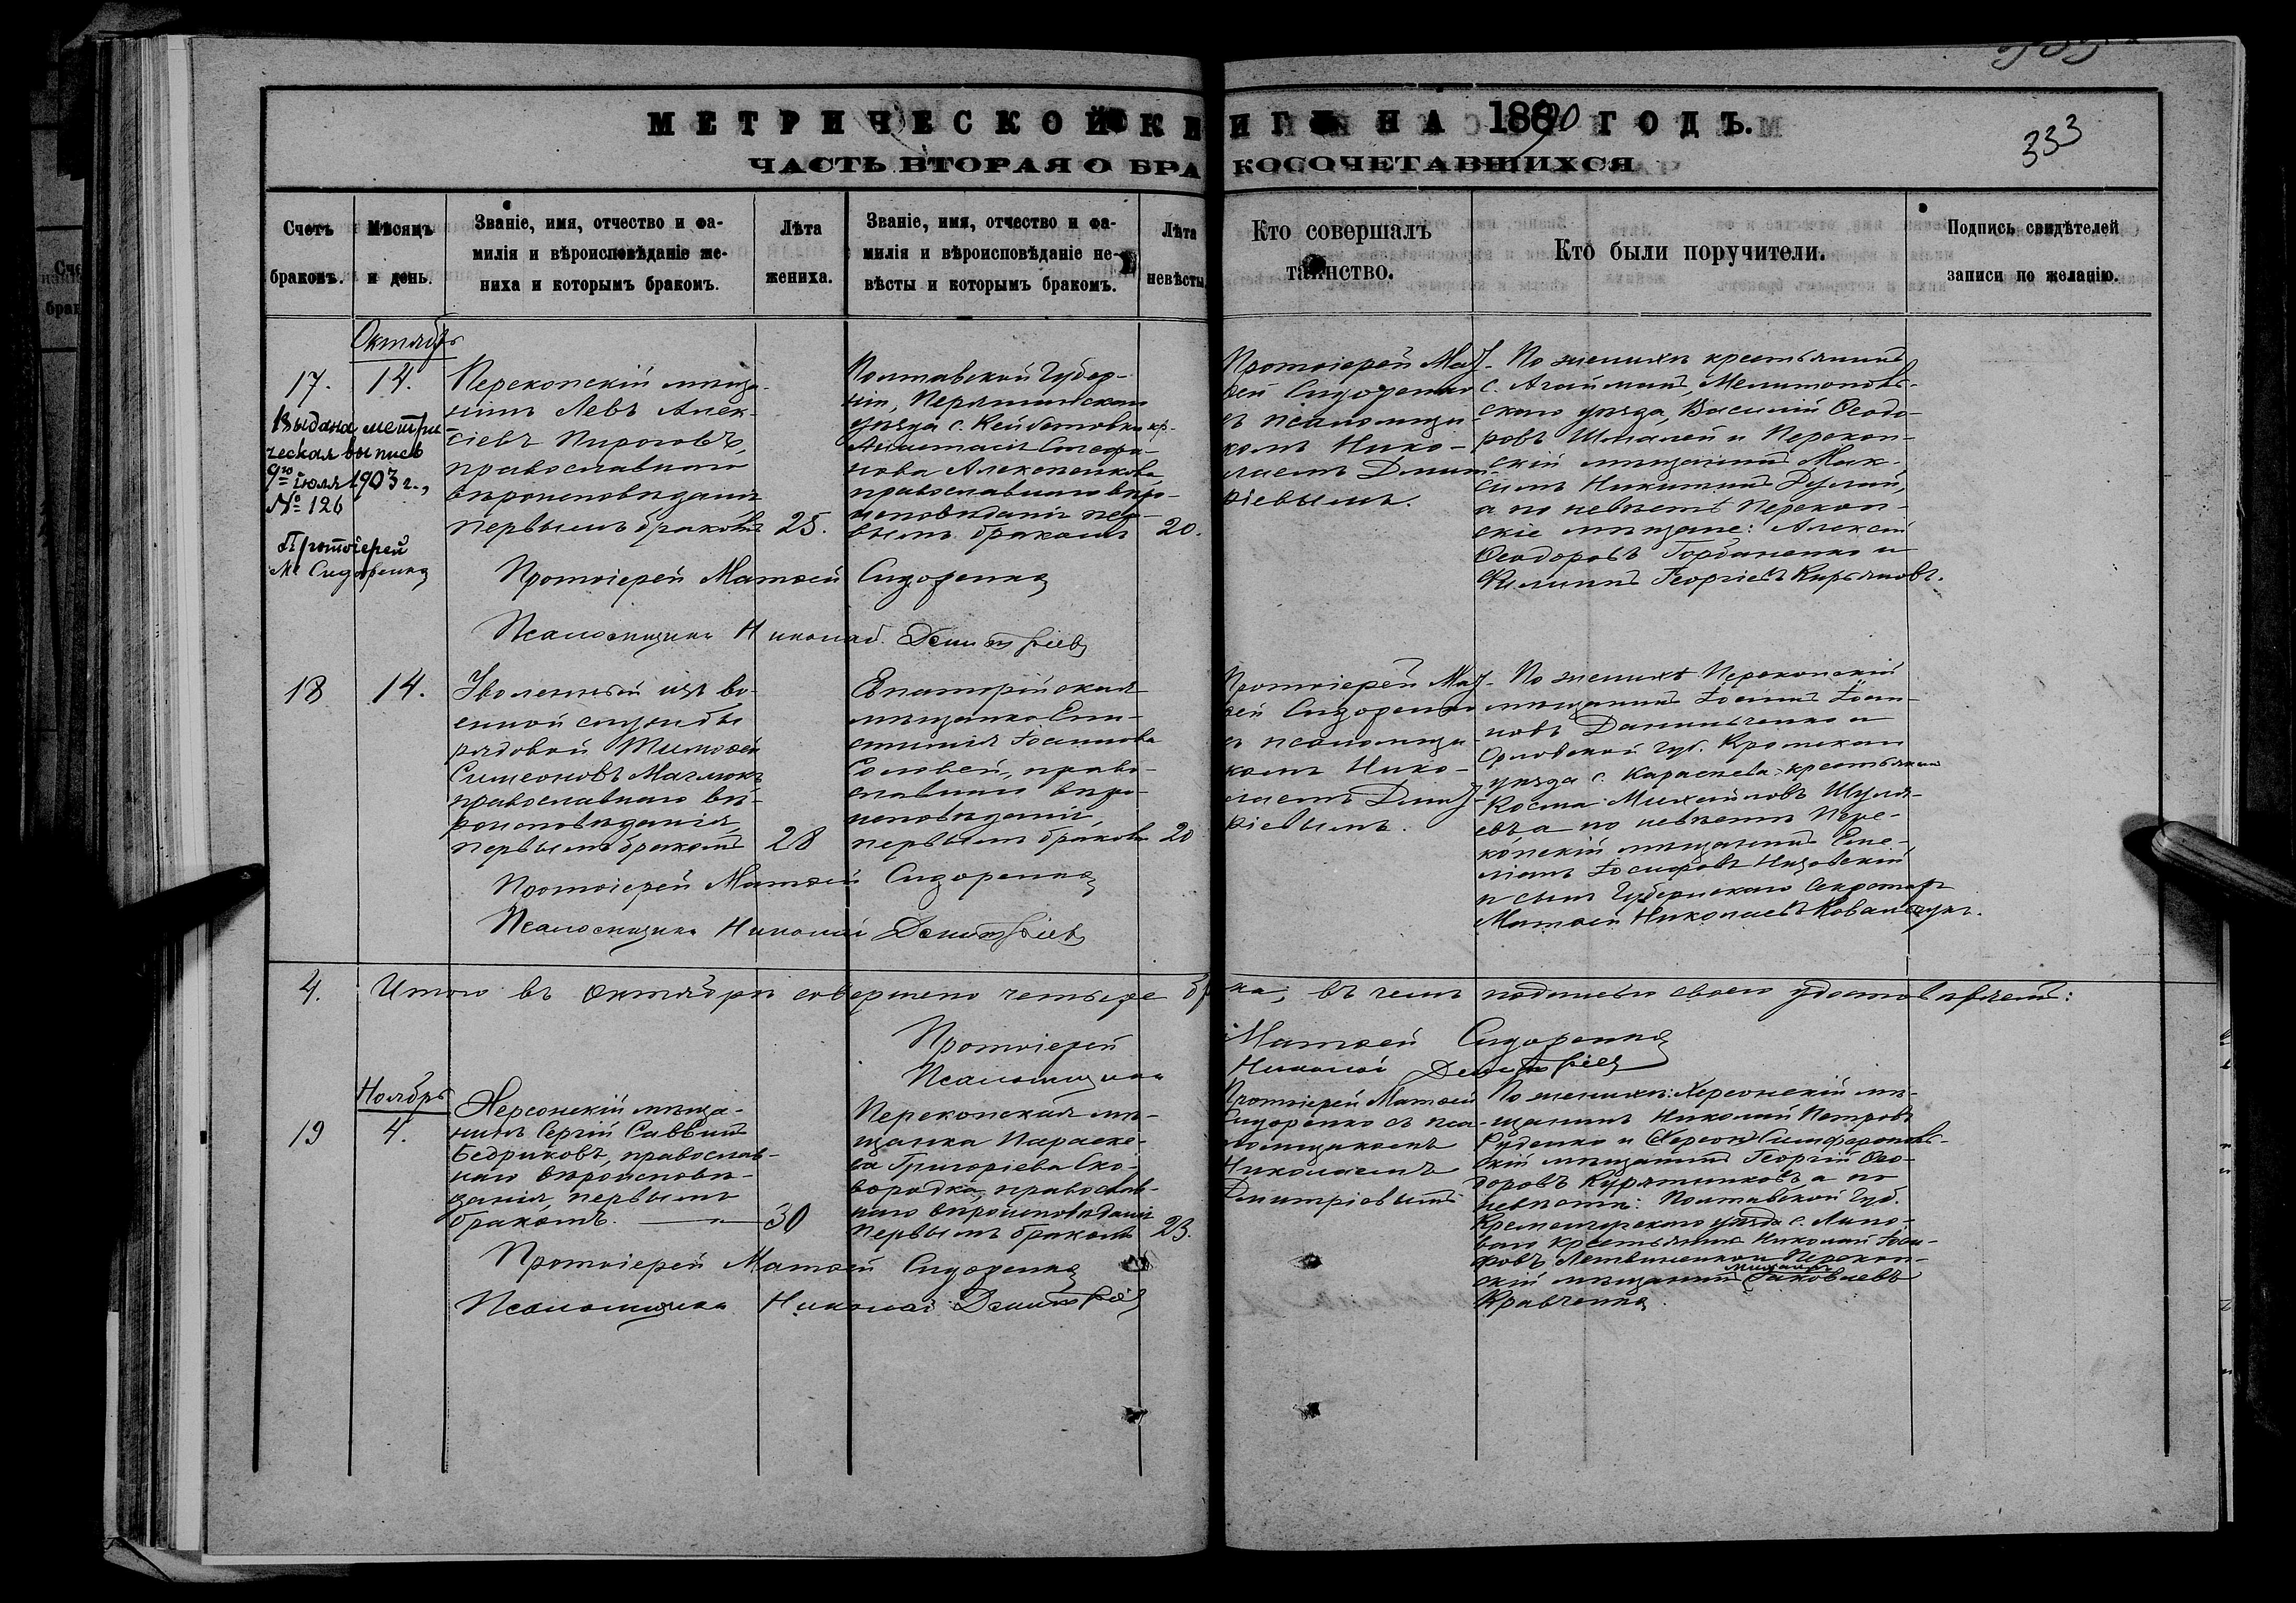 МЕТРИЧЕСКОЙ КНИГИ НА 1890 ГОДЪ.
333
ЧАСТЬ ВТОРАЯ О БРАКОСОЧЕТАВШИХСЯ
Счетъ браковъ.
Мѣсяцъ и день.
Званіе, имя, отчество и фа-
милія и вѣроисповѣданіе же-
ниха и которымъ бракомъ.
Лѣта
жениха.
Званіе, имя, отчество и фа-
милія и вѣроисповѣданіе не-
вѣсты и которымъ бракомъ.
Лѣта
невѣсты
Кто совершалъ
таинство.
Кто были поручители.
Подпись свидѣтелей
записи по желанію.
Октябрь
17.
14.
Выдана метри
ческая выпись
9го іюля 1903 г.,
№ 126
Протоіерей
М. Сидоренко
Перекопскій мѣща-
нинъ Левъ Алек-
сіевъ Пироговъ,
православнаго
вѣроисповѣданія
первымъ бракомъ
25.
Полтавской Губер-
ніи, Пирятинскаго
уѣзда с. Кейбаловки кр.
Анастасія Стефа-
нова
православнаго вѣро-
исповѣданія пер-
вымъ бракомъ
20.
Протоіерей Мат-
ѳей Сидоренко
съ псаломщи-
комъ Нико-
лаемъ Димит
ріевымъ.
По женихѣ крестьянинъ
с. Агаймана, Мелитополь-
скаго уѣзда, Василій Ѳеодо-
ровъ Шмалей и Перекоп-
скій мѣщанинъ Мак-
симъ Никитинъ
а по невѣстѣ Перекоп-
скіе мѣщане: Алексій
Ѳеодоровъ Горбаненко и
Филиппъ Георгіевъ Кирьяновъ.
Протоіерей Матѳей Сидоренко
Псаломщикъ Николай Димитріевъ
18
14.
Уволенный изъ во-
енной службы
рядовой Тимоѳей
Симеоновъ
православнаго вѣ-
роисповѣданія,
первымъ бракомъ
28
Евпаторійская
мѣщанка Епи-
стимія Іоаннова
Соловей, право-
славнаго вѣро-
исповѣданія,
первымъ бракомъ
20
Протоіерей Мат-
ѳей Сидоренко
съ псаломщи-
комъ Нико-
лаемъ Димит-
ріевымъ.
По женихѣ Перекопскій
мѣщанинъ Іоаннъ Іоан-
новъ Данильченко и
Орловской губ. Кромскаго
уѣзда с. крестьянинъ
Косма Михайловъ
а по невѣстѣ Пере-
копскій мѣщанинъ Еме-
ліанъ Іосифовъ Низовскій
и сынъ Губернскаго Секретаря
Матѳей Николаевъ
Протоіерей Матѳей Сидоренко
Псаломщикъ Николай Димитріевъ
4.
Итого въ Октябрѣ совершено четыре бра
ка, въ чемъ подписью своею удостовѣряемъ:
Протоіерей Матѳей Сидоренко
Псаломщикъ Николай Димитріевъ
Ноябрь
19
4.
Херсонскій мѣща-
нинъ Сергій Саввинъ
Бедриковъ, православ-
наго вѣроисповѣ-
данія, первымъ
бракомъ.
30
Перекопская мѣ-
щанка Параске-
ва Григоріева Ско-
вородка, православ-
наго вѣроисповѣданія
первымъ бракомъ
23.
Протоіерей Матѳей
Сидоренко съ пса-
ломщикомъ
Николаемъ
Димитріевымъ
По женихѣ: Херсонскій мѣ-
щанинъ Николай Петровъ
Руденко и (Херсон) Симферополь-
скій мѣщанинъ Георгій Ѳео-
доровъ Курятниковъ, а по
невѣстѣ: Полтавской Губ.
Кременчугскаго уѣзда с.
крестьянинъ Николай Іоси-
фовъ Литвиненко и Перекоп-
скій мѣщанинъ Михаилъ Іаковлевъ
Кравченко.
Протоіерей Матѳей Сидоренко
Псаломщикъ Николай Димитріевъ